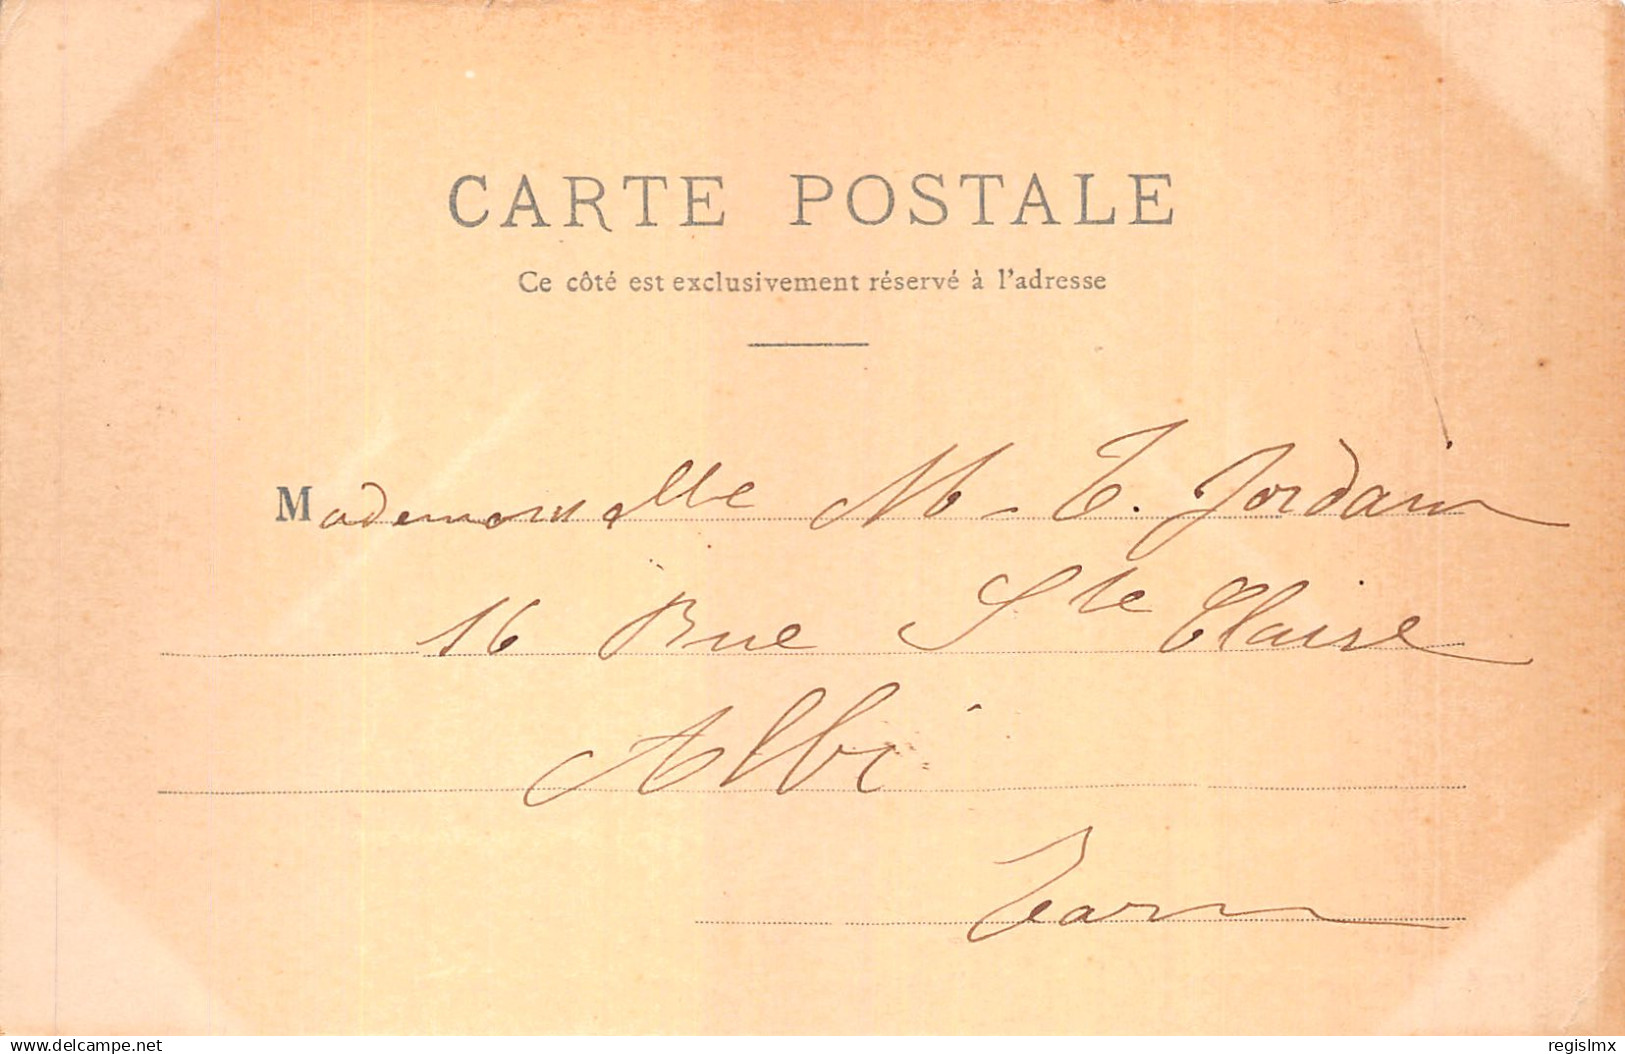 CARTE POSTALE
Ce côté est exclusivement réservé à l'adresse
Mademoiselle M-T. Jordain
16 Rue Ste Claire
Albi
Tarn
www.delcampe.net
regislmx